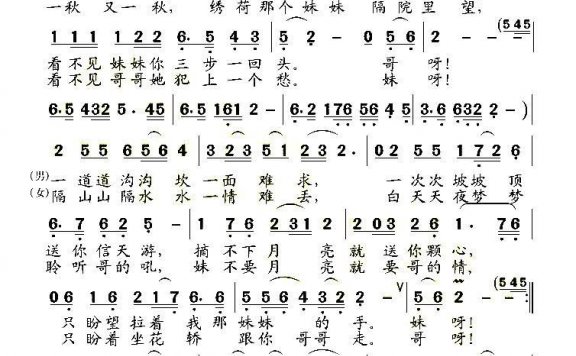 一秋 又一秋, 绣荷那个妹妹 隔院里望,
1 1 1 1 1 2 2 6. 5 4 3 5 2 - 0 5 6 2 - (5 4 5)
看不见妹妹你三步一回头。 哥呀!
看不见哥哥她犯上一个愁。 妹呀!
6.5 432 5 · 45 6.5 161 2 - 6.2 176 56 45 3.6 632 2 - )
2 5 5 6 5 6 4 3 2 3 5 1 2 3 2 - 5 5 5 1 7 2 6
(男) 一道道沟沟坎一面难求, 一次次坡坡顶
(女) 隔山山隔水水一情难丢, 白天天夜梦梦
6. 7 6 2 5 6. 7 6 2 3 1 2 1 1 7 1 2 3 1. 7 6
送你信天游, 摘不下月亮就送你颗心,
聆听哥的吼, 妹不要月亮就要哥的情,
0 6 1 6 2 1 7 6. 5 5 5 6 4 3 2 - 5 6 2 - (5 4 5)
只盼望拉着我那妹妹的手。 妹呀!
只盼着坐花轿跟你哥哥走。 哥呀!